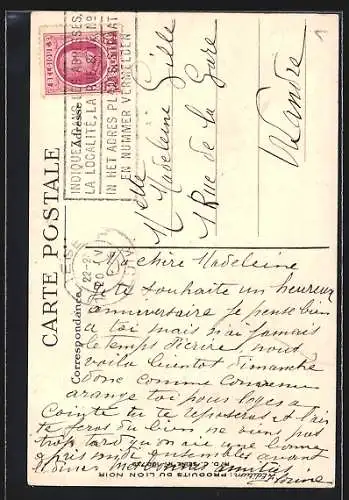 CARTE POSTALE
Correspondance
Adresse
INDIQUEZ DANS LES ADRESSES,
LA LOCALITÉ, LA RUE & LE No
IN HET ADRES PLAATS, STRAAT
EN NUMMER VERMELDEN
Melle
Madeleine Gille
1 Rue de la Gare
1
Ma chère Madeleine
Je te souhaite un heureux
anniversaire je pense bien
a toi mais n'ai jamais
le temps d'écrire, nous
voilà bientot dimanche
donc comme convenu
arrange toi pour
compte tu te reposeras et
te feras du bien ne viens pas
trop tard qu'on aie une bonne
après midi ensembles avant
amitiés
PRODUITS DU LION NOIR